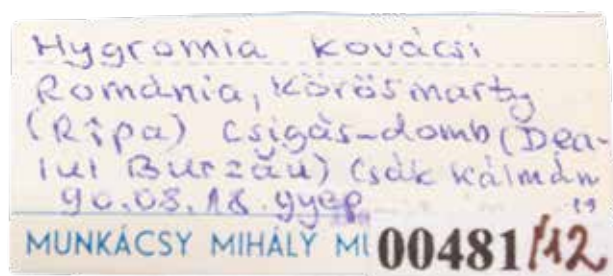 Hygromia kovácsi
Románia, Körösmarty
(Rîpa) Csigás-domb (Dea-
lul Burzău) Csák Kálmán
90.08.18. gyep
MUNKÁCSY MIHÁLY MÚ 00481/12